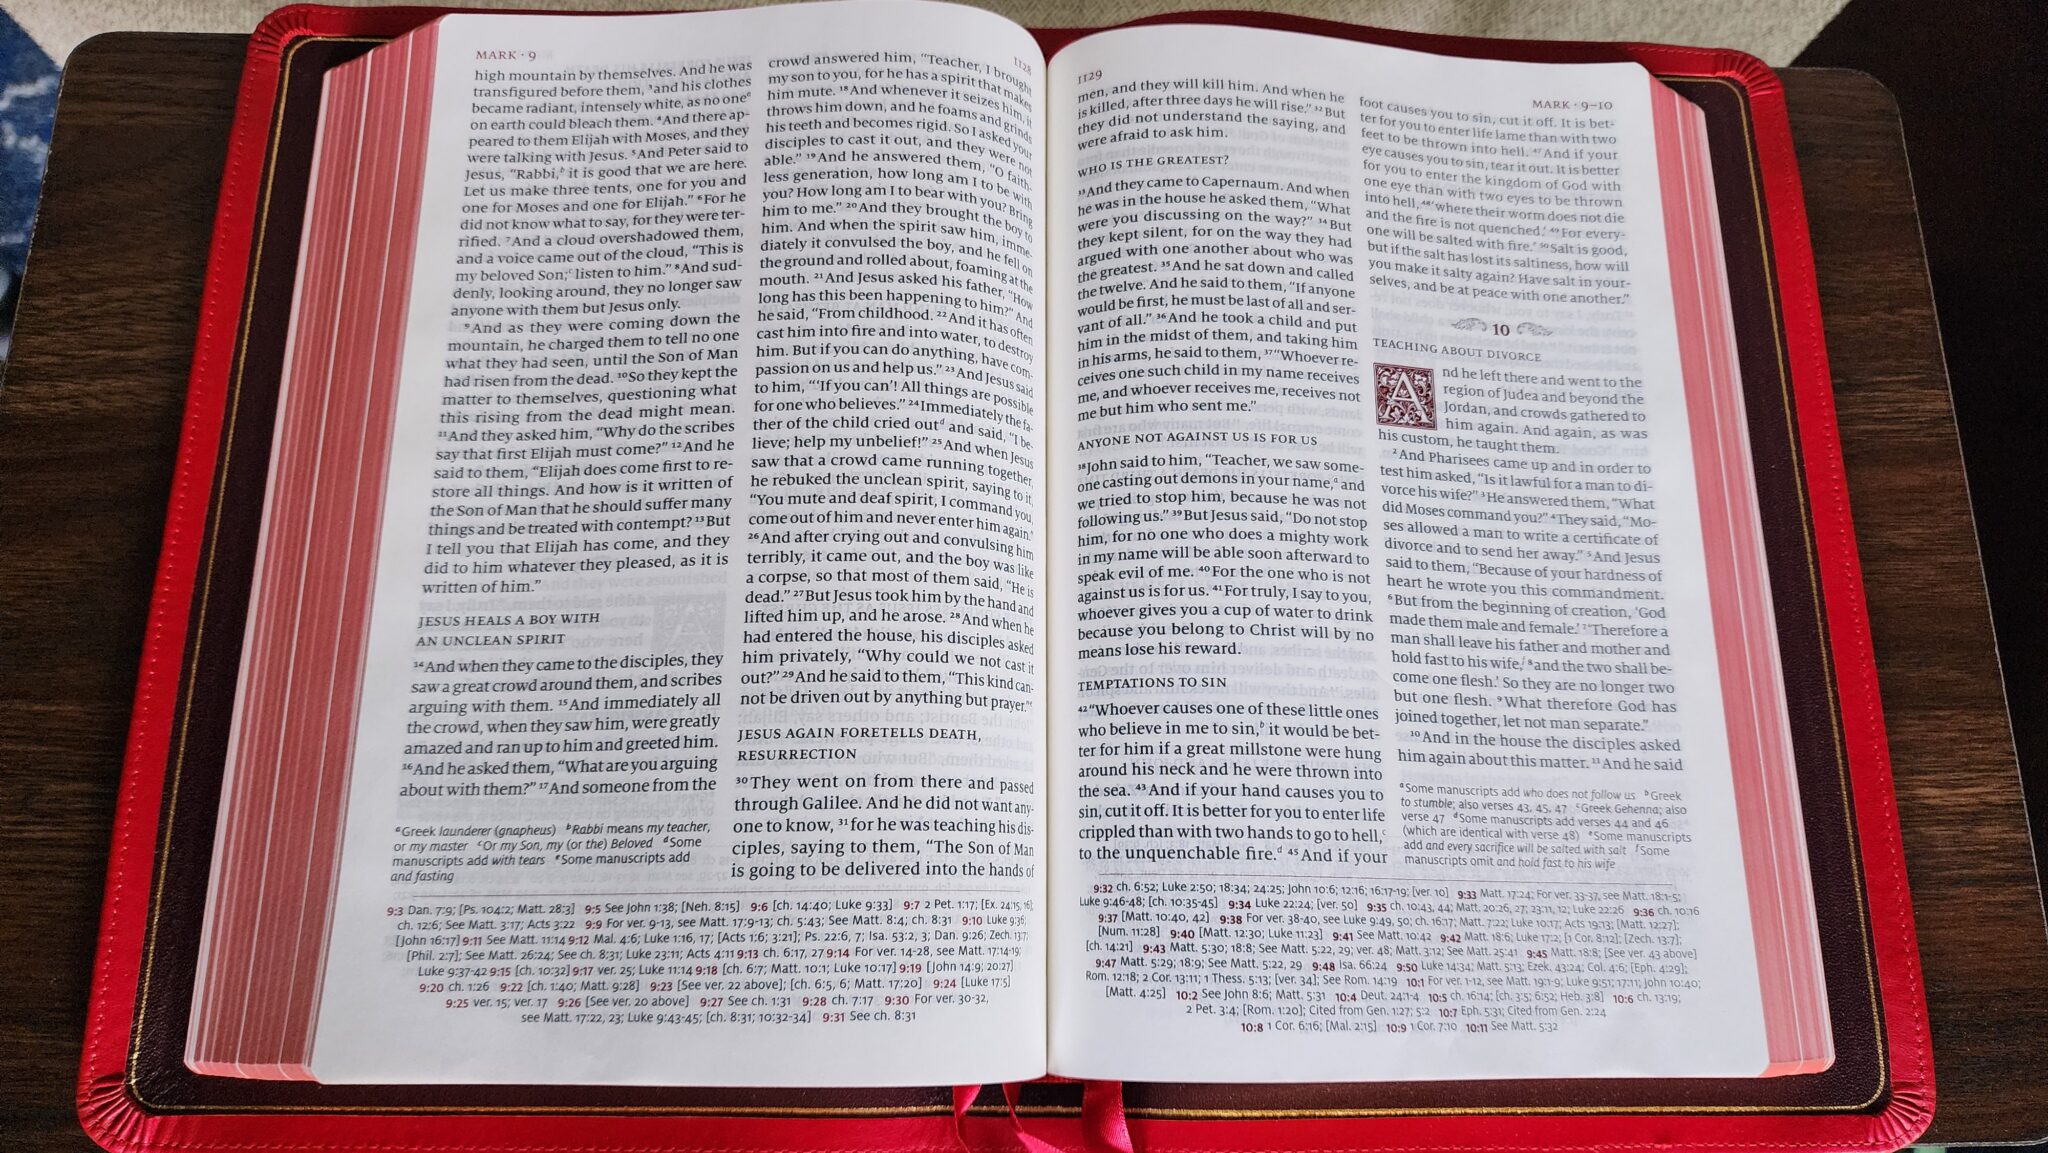 MARK · 9
1128
high mountain by themselves. And he was
transfigured before them, ³and his clothes
became radiant, intensely white, as no oneᵃ
on earth could bleach them. ⁴And there ap-
peared to them Elijah with Moses, and they
were talking with Jesus. ⁵And Peter said to
Jesus, “Rabbi,ᵇ it is good that we are here.
Let us make three tents, one for you and
one for Moses and one for Elijah.” ⁶For he
did not know what to say, for they were ter-
rified. ⁷And a cloud overshadowed them,
and a voice came out of the cloud, “This is
my beloved Son;ᶜ listen to him.” ⁸And sud-
denly, looking around, they no longer saw
anyone with them but Jesus only.
⁹And as they were coming down the
mountain, he charged them to tell no one
what they had seen, until the Son of Man
had risen from the dead. ¹⁰So they kept the
matter to themselves, questioning what
this rising from the dead might mean.
¹¹And they asked him, “Why do the scribes
say that first Elijah must come?” ¹²And he
said to them, “Elijah does come first to re-
store all things. And how is it written of
the Son of Man that he should suffer many
things and be treated with contempt? ¹³But
I tell you that Elijah has come, and they
did to him whatever they pleased, as it is
written of him.”
JESUS HEALS A BOY WITH
AN UNCLEAN SPIRIT
¹⁴And when they came to the disciples, they
saw a great crowd around them, and scribes
arguing with them. ¹⁵And immediately all
the crowd, when they saw him, were greatly
amazed and ran up to him and greeted him.
¹⁶And he asked them, “What are you arguing
about with them?” ¹⁷And someone from the
ᵃGreek launderer (gnapheus) ᵇRabbi means my teacher,
or my master ᶜOr my Son, my (or the) Beloved ᵈSome
manuscripts add with tears ᵉSome manuscripts add
and fasting
crowd answered him, “Teacher, I brought
my son to you, for he has a spirit that makes
him mute. ¹⁸And whenever it seizes him, it
throws him down, and he foams and grinds
his teeth and becomes rigid. So I asked your
disciples to cast it out, and they were not
able.” ¹⁹And he answered them, “O faith-
less generation, how long am I to be with
you? How long am I to bear with you? Bring
him to me.” ²⁰And they brought the boy to
him. And when the spirit saw him, imme-
diately it convulsed the boy, and he fell on
the ground and rolled about, foaming at the
mouth. ²¹And Jesus asked his father, “How
long has this been happening to him?” And
he said, “From childhood. ²²And it has often
cast him into fire and into water, to destroy
him. But if you can do anything, have com-
passion on us and help us.” ²³And Jesus said
to him, “‘If you can’! All things are possible
for one who believes.” ²⁴Immediately the fa-
ther of the child cried outᵈ and said, “I be-
lieve; help my unbelief!” ²⁵And when Jesus
saw that a crowd came running together,
he rebuked the unclean spirit, saying to it,
“You mute and deaf spirit, I command you,
come out of him and never enter him again.”
²⁶And after crying out and convulsing him
terribly, it came out, and the boy was like
a corpse, so that most of them said, “He is
dead.” ²⁷But Jesus took him by the hand and
lifted him up, and he arose. ²⁸And when he
had entered the house, his disciples asked
him privately, “Why could we not cast it
out?” ²⁹And he said to them, “This kind can-
not be driven out by anything but prayer.”ᵉ
JESUS AGAIN FORETELLS DEATH,
RESURRECTION
³⁰They went on from there and passed
through Galilee. And he did not want any-
one to know, ³¹for he was teaching his dis-
ciples, saying to them, “The Son of Man
is going to be delivered into the hands of
9:3 Dan. 7:9; [Ps. 104:2; Matt. 28:3] 9:5 See John 1:38; [Neh. 8:15] 9:6 [ch. 14:40; Luke 9:33] 9:7 2 Pet. 1:17; [Ex. 24:15, 16];
ch. 12:6; See Matt. 3:17; Acts 3:22 9:9 For ver. 9-13, see Matt. 17:9-13; ch. 5:43; See Matt. 8:4; ch. 8:31 9:10 Luke 9:36;
[John 16:17] 9:11 See Matt. 11:14 9:12 Mal. 4:6; Luke 1:16, 17; [Acts 1:6; 3:21]; Ps. 22:6, 7; Isa. 53:2, 3; Dan. 9:26; Zech. 13:7;
[Phil. 2:7]; See Matt. 26:24; See ch. 8:31; Luke 23:11; Acts 4:11 9:13 ch. 6:17, 27 9:14 For ver. 14-28, see Matt. 17:14-19;
Luke 9:37-42 9:15 [ch. 10:32] 9:17 ver. 25; Luke 11:14 9:18 [ch. 6:7; Matt. 10:1; Luke 10:17] 9:19 [John 14:9; 20:27]
9:20 ch. 1:26 9:22 [ch. 1:40; Matt. 9:28] 9:23 [See ver. 22 above]; [ch. 6:5, 6; Matt. 17:20] 9:24 [Luke 17:5]
9:25 ver. 15; ver. 17 9:26 [See ver. 20 above] 9:27 See ch. 1:31 9:28 ch. 7:17 9:30 For ver. 30-32,
see Matt. 17:22, 23; Luke 9:43-45; [ch. 8:31; 10:32-34] 9:31 See ch. 8:31
1129
MARK · 9–10
men, and they will kill him. And when he
is killed, after three days he will rise.” ³²But
they did not understand the saying, and
were afraid to ask him.
WHO IS THE GREATEST?
³³And they came to Capernaum. And when
he was in the house he asked them, “What
were you discussing on the way?” ³⁴But
they kept silent, for on the way they had
argued with one another about who was
the greatest. ³⁵And he sat down and called
the twelve. And he said to them, “If anyone
would be first, he must be last of all and ser-
vant of all.” ³⁶And he took a child and put
him in the midst of them, and taking him
in his arms, he said to them, ³⁷“Whoever re-
ceives one such child in my name receives
me, and whoever receives me, receives not
me but him who sent me.”
ANYONE NOT AGAINST US IS FOR US
³⁸John said to him, “Teacher, we saw some-
one casting out demons in your name,ᵃ and
we tried to stop him, because he was not
following us.” ³⁹But Jesus said, “Do not stop
him, for no one who does a mighty work
in my name will be able soon afterward to
speak evil of me. ⁴⁰For the one who is not
against us is for us. ⁴¹For truly, I say to you,
whoever gives you a cup of water to drink
because you belong to Christ will by no
means lose his reward.
TEMPTATIONS TO SIN
⁴²“Whoever causes one of these little ones
who believe in me to sin,ᵇ it would be bet-
ter for him if a great millstone were hung
around his neck and he were thrown into
the sea. ⁴³And if your hand causes you to
sin, cut it off. It is better for you to enter life
crippled than with two hands to go to hell,ᶜ
to the unquenchable fire.ᵈ ⁴⁵And if your
foot causes you to sin, cut it off. It is bet-
ter for you to enter life lame than with two
feet to be thrown into hell. ⁴⁷And if your
eye causes you to sin, tear it out. It is better
for you to enter the kingdom of God with
one eye than with two eyes to be thrown
into hell, ⁴⁸‘where their worm does not die
and the fire is not quenched.’ ⁴⁹For every-
one will be salted with fire.ᵉ ⁵⁰Salt is good,
but if the salt has lost its saltiness, how will
you make it salty again? Have salt in your-
selves, and be at peace with one another.”
10
TEACHING ABOUT DIVORCE
And he left there and went to the
region of Judea and beyond the
Jordan, and crowds gathered to
him again. And again, as was
his custom, he taught them.
²And Pharisees came up and in order to
test him asked, “Is it lawful for a man to di-
vorce his wife?” ³He answered them, “What
did Moses command you?” ⁴They said, “Mo-
ses allowed a man to write a certificate of
divorce and to send her away.” ⁵And Jesus
said to them, “Because of your hardness of
heart he wrote you this commandment.
⁶But from the beginning of creation, ‘God
made them male and female.’ ⁷‘Therefore a
man shall leave his father and mother and
hold fast to his wife,ᶠ ⁸and the two shall be-
come one flesh.’ So they are no longer two
but one flesh. ⁹What therefore God has
joined together, let not man separate.”
¹⁰And in the house the disciples asked
him again about this matter. ¹¹And he said
ᵃSome manuscripts add who does not follow us ᵇGreek
to stumble; also verses 43, 45, 47 ᶜGreek Gehenna; also
verse 47 ᵈSome manuscripts add verses 44 and 46
(which are identical with verse 48) ᵉSome manuscripts
add and every sacrifice will be salted with salt ᶠSome
manuscripts omit and hold fast to his wife
9:32 ch. 6:52; Luke 2:50; 18:34; 24:25; John 10:6; 12:16; 16:17-19; [ver. 10] 9:33 Matt. 17:24; For ver. 33-37, see Matt. 18:1-5;
Luke 9:46-48; [ch. 10:35-45] 9:34 Luke 22:24; [ver. 50] 9:35 ch. 10:43, 44; Matt. 20:26, 27; 23:11, 12; Luke 22:26 9:36 ch. 10:16
9:37 [Matt. 10:40, 42] 9:38 For ver. 38-40, see Luke 9:49, 50; ch. 16:17; Matt. 7:22; Luke 10:17; Acts 19:13; [Matt. 12:27];
[Num. 11:28] 9:40 [Matt. 12:30; Luke 11:23] 9:41 See Matt. 10:42 9:42 Matt. 18:6; Luke 17:2; [1 Cor. 8:12]; [Zech. 13:7];
[ch. 14:21] 9:43 Matt. 5:30; 18:8; See Matt. 5:22, 29; ver. 48; Matt. 3:12; See Matt. 25:41 9:45 Matt. 18:8; [See ver. 43 above]
9:47 Matt. 5:29; 18:9; See Matt. 5:22, 29 9:48 Isa. 66:24 9:50 Luke 14:34; Matt. 5:13; Ezek. 43:24; Col. 4:6; [Eph. 4:29];
Rom. 12:18; 2 Cor. 13:11; 1 Thess. 5:13; [ver. 34]; See Rom. 14:19 10:1 For ver. 1-12, see Matt. 19:1-9; Luke 9:51; 17:11; John 10:40;
[Matt. 4:25] 10:2 See John 8:6; Matt. 5:31 10:4 Deut. 24:1-4 10:5 ch. 16:14; [ch. 3:5; 6:52; Heb. 3:8] 10:6 ch. 13:19;
2 Pet. 3:4; [Rom. 1:20]; Cited from Gen. 1:27; 5:2 10:7 Eph. 5:31; Cited from Gen. 2:24
10:8 1 Cor. 6:16; [Mal. 2:15] 10:9 1 Cor. 7:10 10:11 See Matt. 5:32